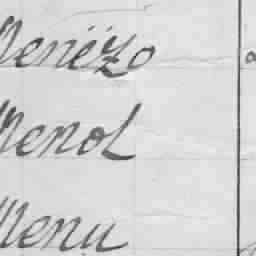 Menëzo
Menol
Menu